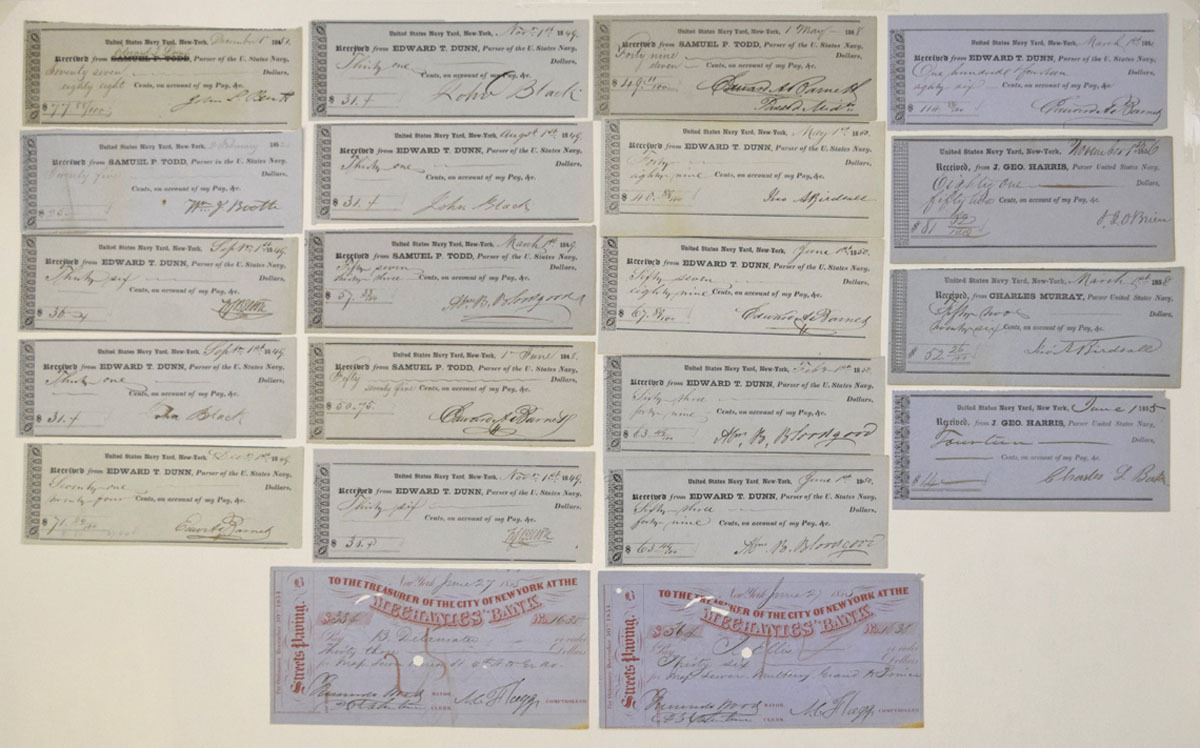 United States Navy Yard, New-York, December 1 1851
Received from SAMUEL P. TODD, Purser of the U. States Navy,
Seventy seven Dollars,
eighty eight Cents, on account of my Pay, &c.
$77 88/100
United States Navy Yard, New-York, 2 February 185
Received from SAMUEL P. TODD, Purser in the U. States Navy,
Twenty five Dollars,
Cents, on account of my Pay, &c.
$25 Wm J Booth
United States Navy Yard, New-York, Sept 1st 1849
Received from EDWARD T. DUNN, Purser of the U. States Navy,
Thirty six Dollars,
Cents, on account of my Pay, &c.
$36
United States Navy Yard, New-York, Sept 1st 1849
Received from EDWARD T. DUNN, Purser of the U. States Navy,
Thirty one Dollars,
Cents, on account of my Pay, &c.
$31 Black
United States Navy Yard, New-York, 1st 1849
Received from EDWARD T. DUNN, Purser of the U. States Navy,
Seventy one Dollars,
twenty four Cents, on account of my Pay, &c.
$71 Edward A Barnett
United States Navy Yard, New-York, Novr 1st 1849
Received from EDWARD T. DUNN, Purser of the U. States Navy,
Thirty one Dollars,
Cents, on account of my Pay, &c.
$31 John Black
United States Navy Yard, New-York, Augst 1st 1849
Received from EDWARD T. DUNN, Purser of the U. States Navy,
Thirty one Dollars,
Cents, on account of my Pay, &c.
$31 John Black
United States Navy Yard, New-York, March 1st 1849
Received from SAMUEL P. TODD, Purser of the U. States Navy,
Fifty seven Dollars,
thirty three Cents, on account of my Pay, &c.
$57 33/100 Abm B. Bloodgood
United States Navy Yard, New-York, 1st June 184
Received from SAMUEL P. TODD, Purser of the U. States Navy,
Fifty Dollars,
seventy five Cents, on account of my Pay, &c.
$50.75 Edward A Barnett
United States Navy Yard, New-York, Novr 1st 1849
Received from EDWARD T. DUNN, Purser of the U. States Navy,
Thirty six Dollars,
Cents, on account of my Pay, &c.
United States Navy Yard, New-York, 1st May 1848
Received from SAMUEL P. TODD, Purser of the U. States Navy,
Forty nine Dollars,
seven Cents, on account of my Pay, &c.
$49 Edward A Barnett
United States Navy Yard, New-York, May 1st 1850
Received from EDWARD T. DUNN, Purser of the U. States Navy,
Forty Dollars,
eighty nine Cents, on account of my Pay, &c.
$40 89/100 Jno A Birdsall
United States Navy Yard, New-York, June 1st 1850
Received from EDWARD T. DUNN, Purser of the U. States Navy,
Fifty seven Dollars,
eighty nine Cents, on account of my Pay, &c.
Edward A Barnett
United States Navy Yard, New-York, Feby 1st 1850
Received from EDWARD T. DUNN, Purser of the U. States Navy,
Sixty three Dollars,
forty nine Cents, on account of my Pay, &c.
$63 49/100 Abm B. Bloodgood
United States Navy Yard, New-York, June 1st 1850
Received from EDWARD T. DUNN, Purser of the U. States Navy,
Fifty three Dollars,
forty nine Cents, on account of my Pay, &c.
Abm B. Bloodgood
United States Navy Yard, New-York, March 1st 185
Received from EDWARD T. DUNN, Purser of the U. States Navy,
One hundred fourteen Dollars,
eighty six Cents, on account of my Pay, &c.
$114 86/100 Edward A Barnett
United States Navy Yard, New-York, November 1st 1856
Received, from J. GEO. HARRIS, Purser United States Navy,
Eighty one Dollars,
fifty two Cents, on account of my Pay, &c.
$81 52/100 O'Brien
United States Navy Yard, New-York, March 1st 1858
Received, from CHARLES MURRAY, Purser United States Navy,
Fifty two Dollars,
twenty six Cents, on account of my Pay, &c.
$52 26/100 Jno A Birdsall
United States Navy Yard, New York, June 1 1855
Received, from J. GEO. HARRIS, Purser United States Navy,
Fourteen Dollars,
Cents, on account of my Pay, &c.
$14 Charles L
Streets Paving.
For Ordinance, December 30th 1854
New York June 27 1855
TO THE TREASURER OF THE CITY OF NEW YORK AT THE
MECHANICS' BANK.
Pay B. or order
Thirty three Dollars
for
Fernando Wood MAYOR.
CLERK. COMPTROLLER
Streets Paving.
For Ordinance, December 30th 1854
New York June 27 1855
TO THE TREASURER OF THE CITY OF NEW YORK AT THE
MECHANICS' BANK.
$36
Pay Ellis or order
Thirty six Dollars
for Map Sewer Mulberry Grand
Fernando Wood MAYOR.
CLERK. COMPTROLLER